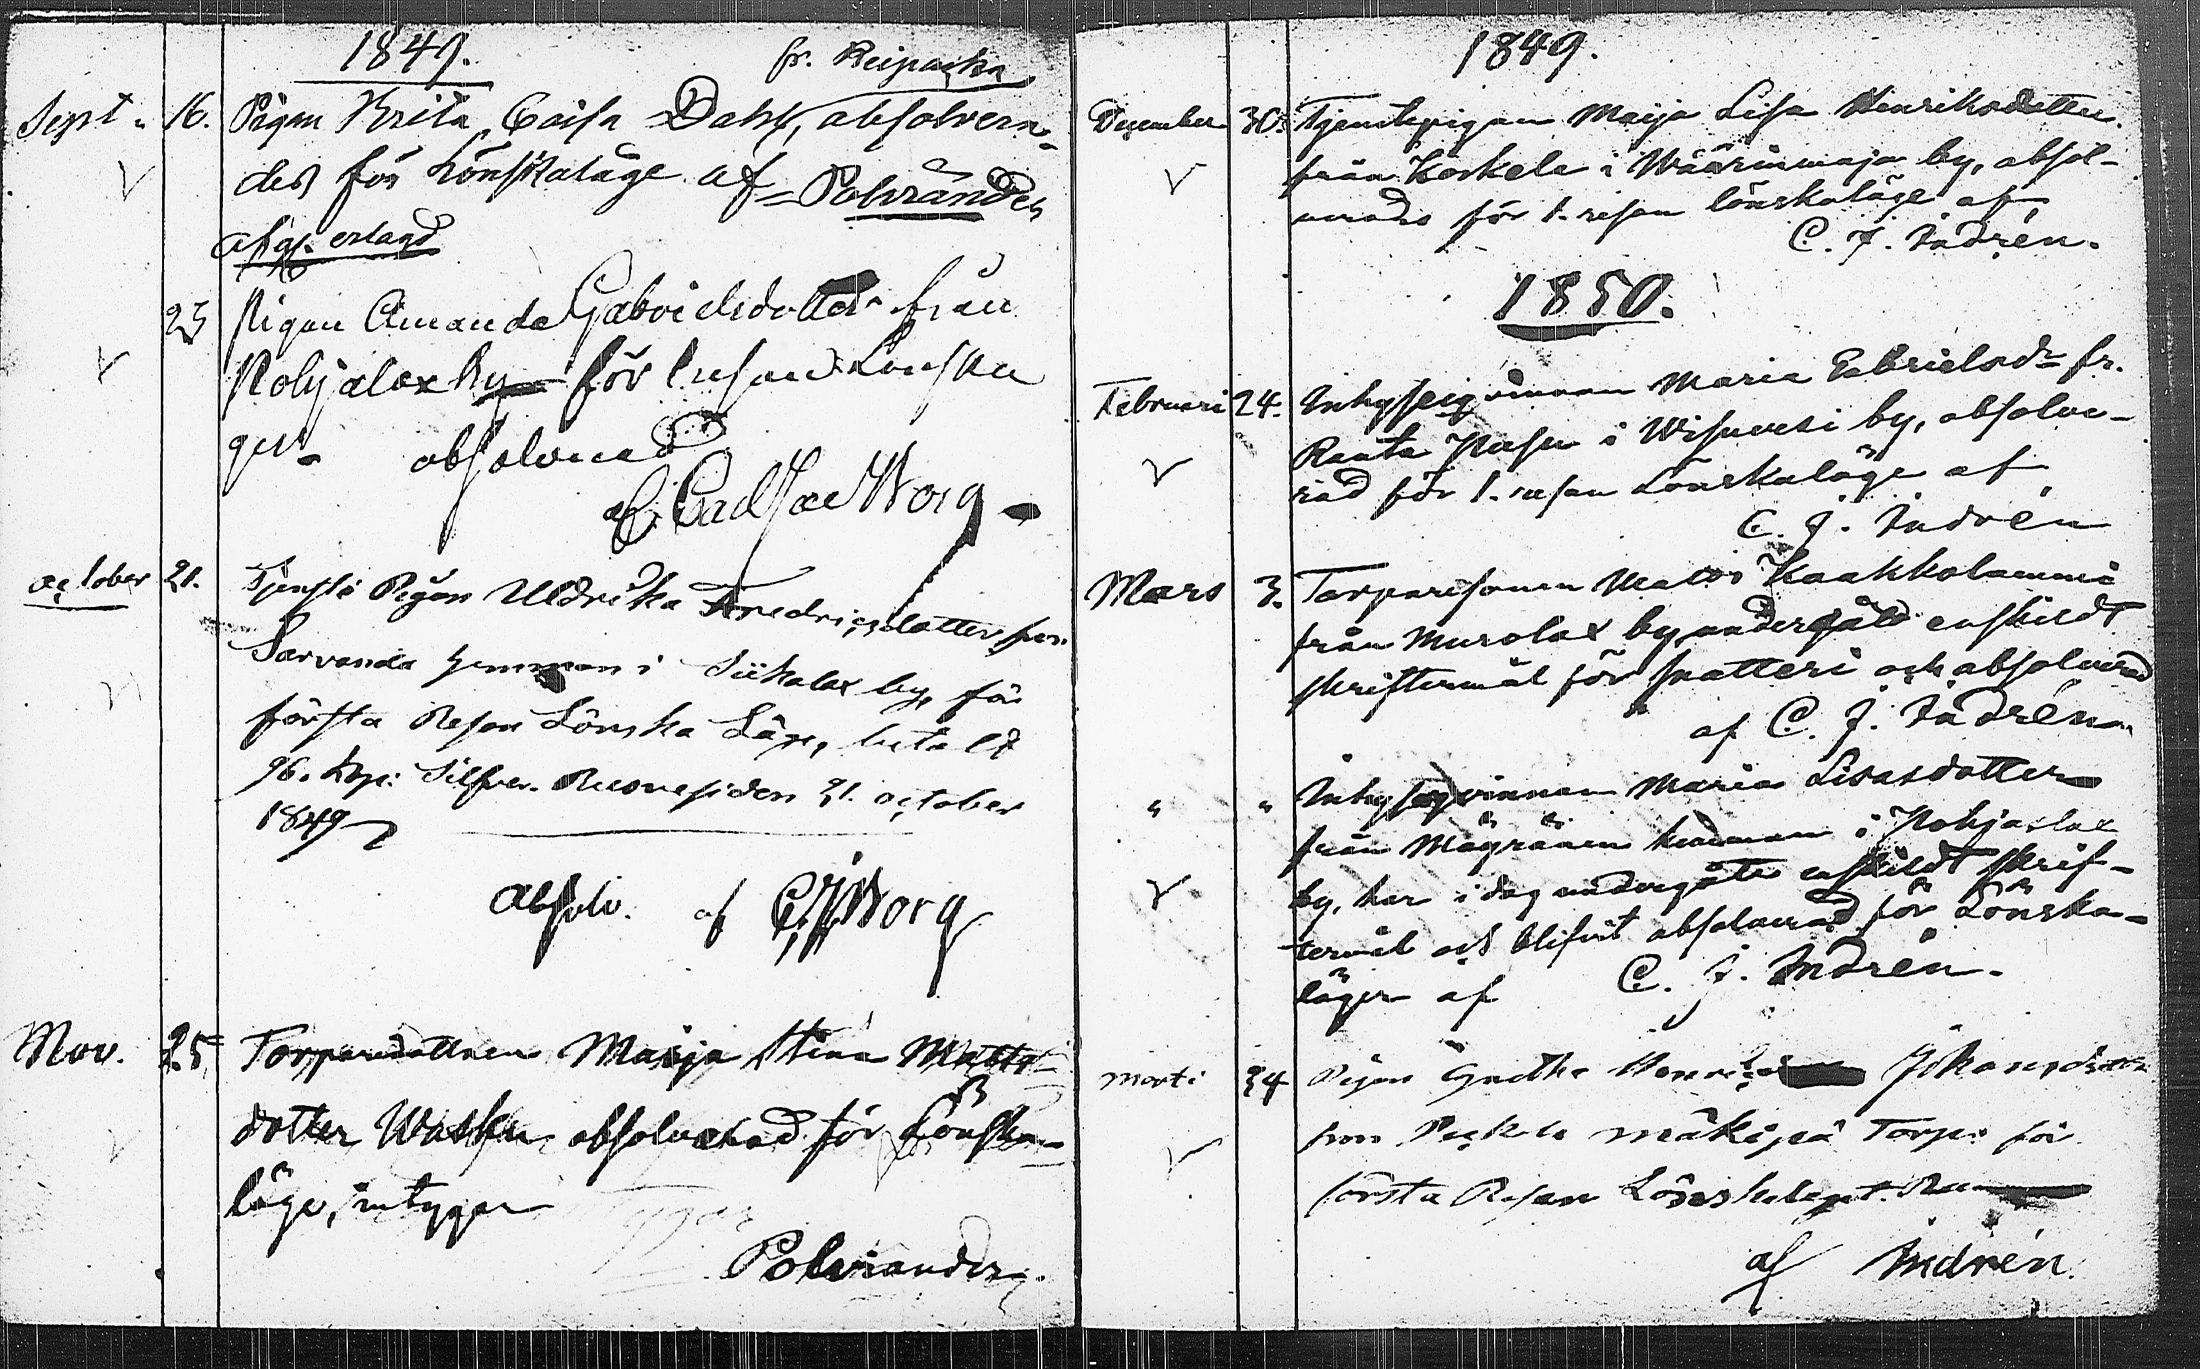 1849.
fr. Reipaska
Sept. 16. Pigan Brita Caisa Dahl, absolvera-
des för Lönskaläge af Polviander
afg. erlagd
25 Pigan Amanda Gabrielsdotter från
Pohjalax by för 1 resan Lönska
ger absolverad
af Carl Jac Worg
October 21. Tjenste Pigan Uldrika Fredricsdotter från
Sarvanda hemman i Siikalax by, för
första Resan Lönska Läge, betalt
96. kop: Silfver. Ruovesiden 21. october
1849
Absolv. af C. J. Worg
Nov. 25. Torparedottren Maija Stina Matts
dotter Wasku absolverad för Lönska-
läge, intygar
Polviander.
1849.
December 30. Tjenstepigan Maija Lisa Henriksdotter
från Koskela i Wäärinmaja by, absol-
verades för 1. resan lönskaläge af
C. J. Indrén.
1850.
Februari 24. Inhysesqvinnan Maria Gabrielsdr fr.
Rauta i Wisuvesi by, absolve-
rad för 1. resan Lönskaläge af
C. J. Indrén
Mars 3. Torparesonen Matts Kaakkolammi
från Murolax by, undergått enskildt
skriftermål för snatteri och absolverad
af C. J. Indrén
" " Inhysesqvinnan Maria Lisasdotter
från Mägränen hemman i Pohjaslax
by, har i dag undergått enskildt skrif-
termål och blifvit absolverad för Lönska-
läger af C. J. Indrén.
Marti 24 Pigan Johansdotter
från Pekkla mäkipä Torp. för
första Resan Lönskaleget.
af Indrén.